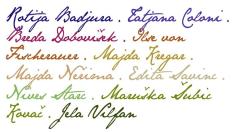 Rotija Badjura . Tatjana Coloni .
Breda Dobovišek . Ilse von
Fischerauer . Majda Kregar .
Majda Nerima . Edita Savinc .
Nives Starc . Maruška Šubic
Kovač . Jela Vilfan